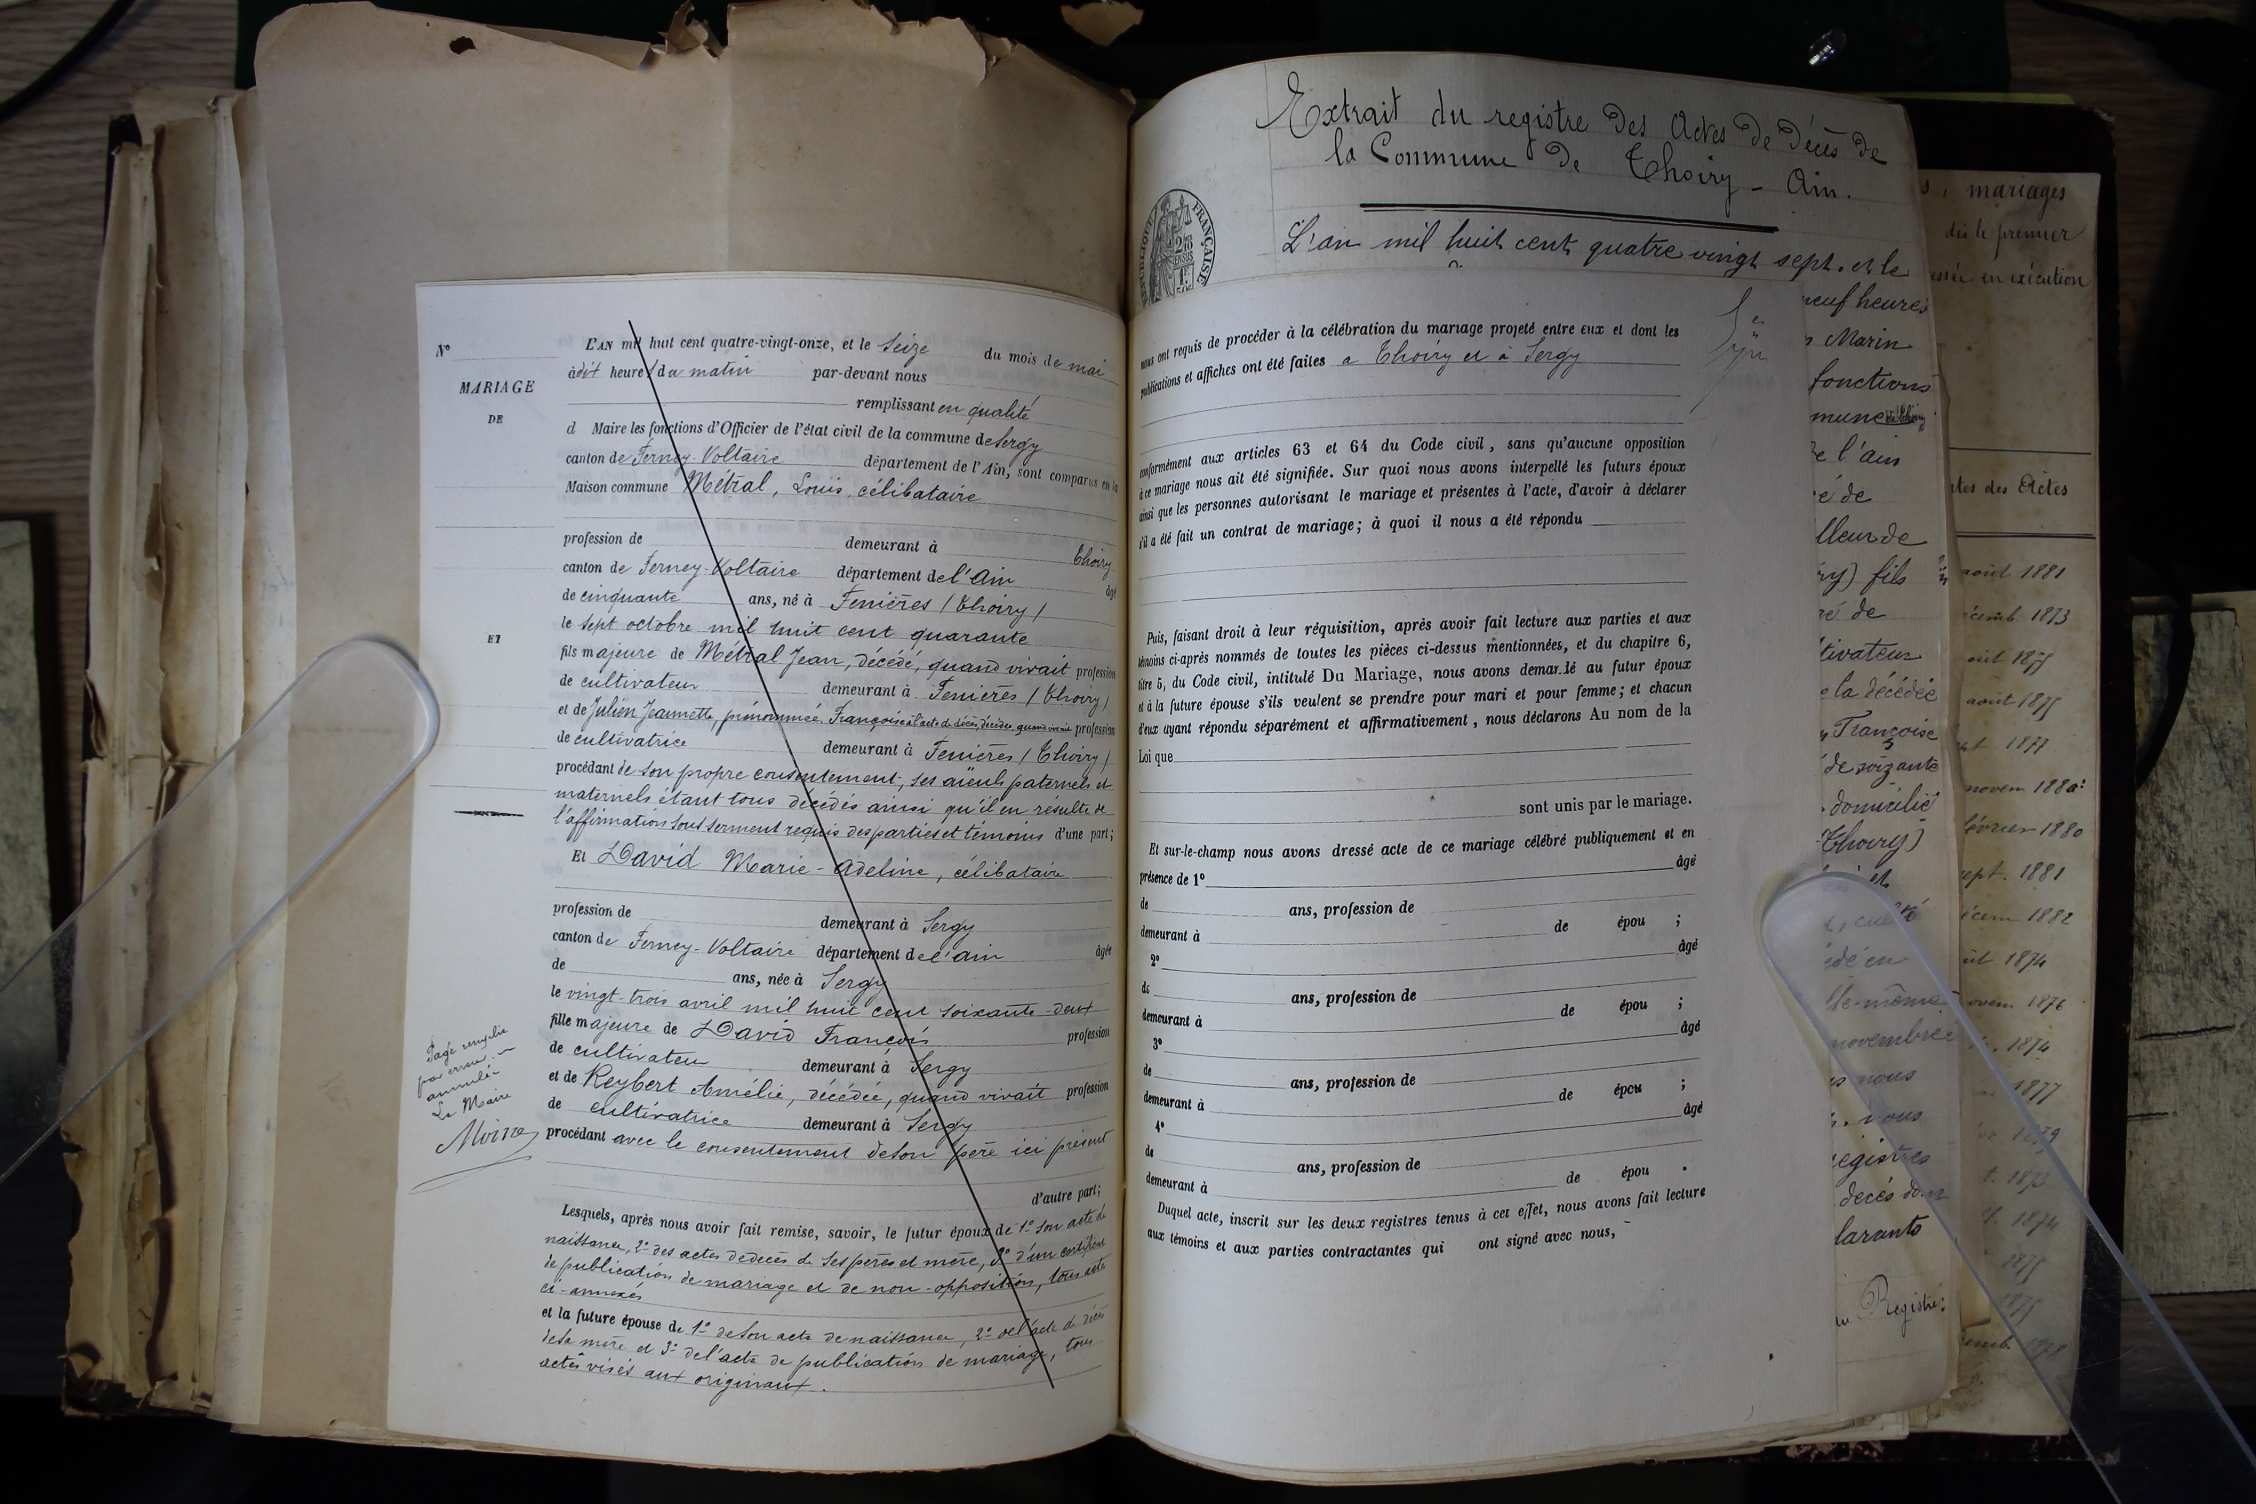 Nº
MARIAGE
DE
ET
L'AN mil huit cent quatre-vingt-onze, et le Seize du mois de mai
à dix heures du matin par-devant nous
remplissant en qualité
d Maire les fonctions d'Officier de l'état civil de la commune de Sergy
canton de Ferney-Voltaire département de l'Ain, sont comparus en la
Maison commune Métral, Louis, célibataire
profession de demeurant à Thoiry
canton de Ferney-Voltaire département de l'Ain âgé
de cinquante ans, né à Fenières (Thoiry)
le sept octobre mil huit cent quarante
fils majeure de Métral Jean, décédé, quand vivait profession
de cultivateur demeurant à Fenières (Thoiry)
et de Julien Jeannette, prénommée Françoise à l'acte de décès, décédée, quand vivait profession
de cultivatrice demeurant à Fenières (Thoiry)
procédant de son propre consentement, ses aïeuls paternels et
maternels étant tous décédés ainsi qu'il en résulte de
l'affirmation sous serment requis des parties et témoins d'une part;
Et David Marie-Adeline, célibataire
profession de demeurant à Sergy
canton de Ferney-Voltaire département de l'Ain âgée
de ans, née à Sergy
le vingt-trois avril mil huit cent soixante-deux
fille majeure de David François profession
de cultivateur demeurant à Sergy
et de Reybert Amélie, décédée, quand vivait profession
de cultivatrice demeurant à Sergy
procédant avec le consentement de son père ici présent
d'autre part;
Lesquels, après nous avoir fait remise, savoir, le futur époux de 1º son acte de
naissance, 2º des actes de décès de ses père et mère, 3º d'un certificat
de publication de mariage et de non-opposition, tous actes
ci-annexés
et la future épouse de 1º de son acte de naissance, 2º de l'acte de décès
de sa mère et 3º de l'acte de publication de mariage, tous
actes visés aux originaux.
Page remplie
par erreur
annulée
Le Maire
Moine
Extrait du registre des Actes de Décès de
la Commune de Thoiry - Ain.
RÉPUBLIQUE FRANÇAISE
L'an mil huit cent quatre vingt sept et le
nous ont requis de procéder à la célébration du mariage projeté entre eux et dont les
publications et affiches ont été faites à Thoiry et à Sergy
conformément aux articles 63 et 64 du Code civil, sans qu'aucune opposition
à ce mariage nous ait été signifiée. Sur quoi nous avons interpellé les futurs époux
ainsi que les personnes autorisant le mariage et présentes à l'acte, d'avoir à déclarer
s'il a été fait un contrat de mariage; à quoi il nous a été répondu
Puis, faisant droit à leur réquisition, après avoir fait lecture aux parties et aux
témoins ci-après nommés de toutes les pièces ci-dessus mentionnées, et du chapitre 6,
titre 5, du Code civil, intitulé Du Mariage, nous avons demandé au futur époux
et à la future épouse s'ils veulent se prendre pour mari et pour femme; et chacun
d'eux ayant répondu séparément et affirmativement, nous déclarons Au nom de la
Loi que
sont unis par le mariage.
Et sur-le-champ nous avons dressé acte de ce mariage célébré publiquement et en
présence de 1º âgé
de ans, profession de
demeurant à de épou ;
2º âgé
de ans, profession de
demeurant à de épou ;
3º âgé
de ans, profession de
demeurant à de épou ;
4º âgé
de ans, profession de
demeurant à de épou .
Duquel acte, inscrit sur les deux registres tenus à cet effet, nous avons fait lecture
aux témoins et aux parties contractantes qui ont signé avec nous,
neuf heures
Marin
fonctions
de l'ain
fils
la décédée
Françoise
de soixante
domicilié
Thoiry)
novembre
nous
registres
decés
Registre:
mariages
dès le premier
en exécution
des Actes
août 1881
1873
août 1875
1877
novem 1880
février 1880
sept. 1881
1882
1874
novem. 1876
1874
1877
1879
1874